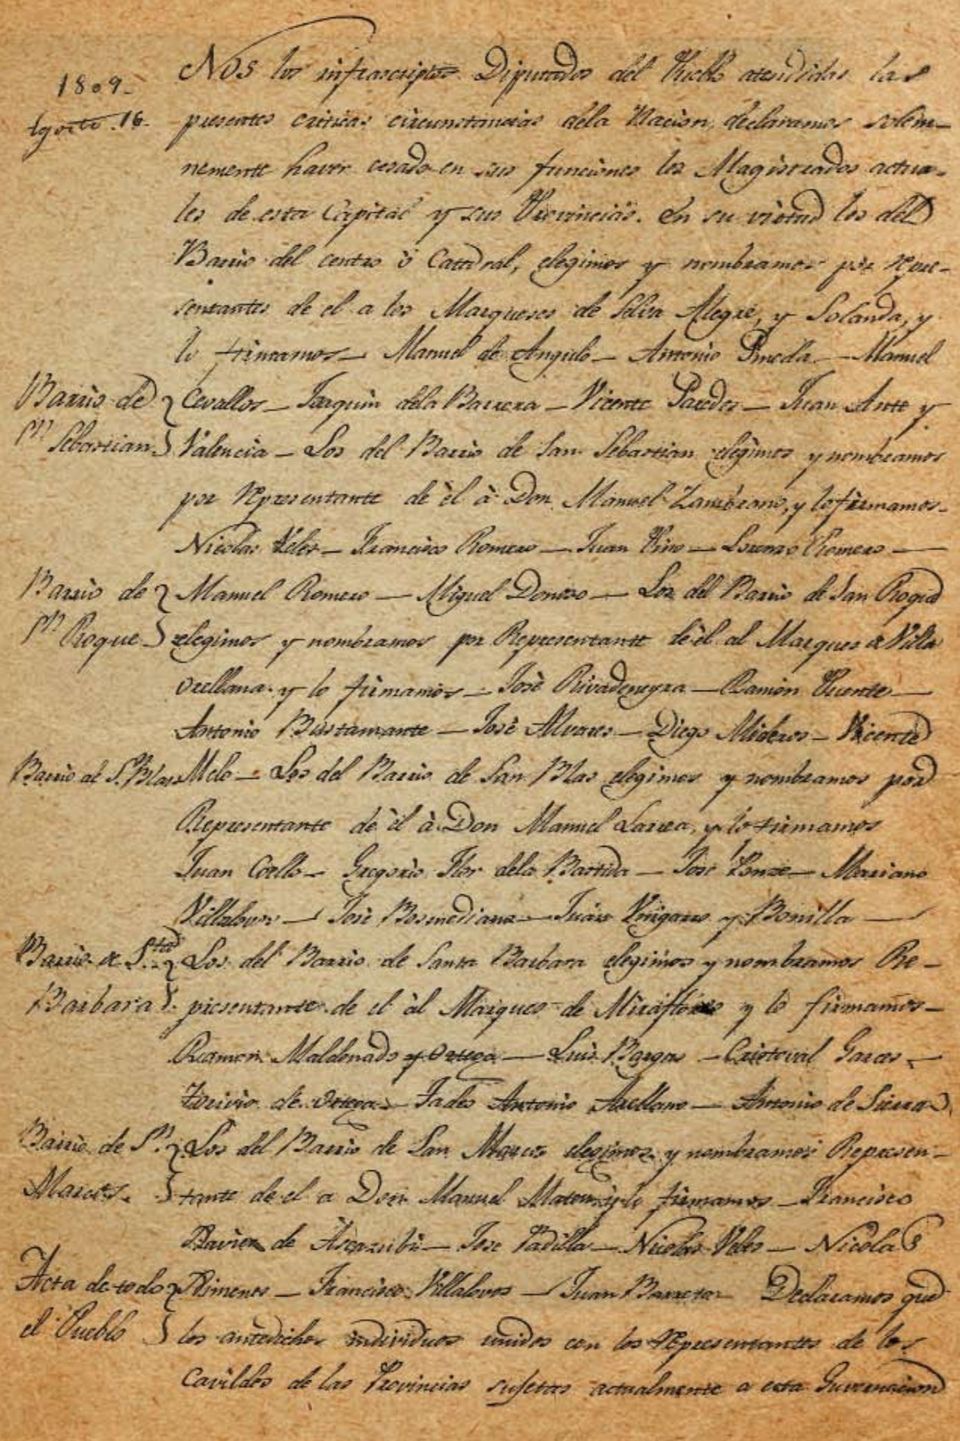 1809.
Agosto. 16.
Nos los infrascriptos Diputados del Pueblo atendidas las
presentes criticas circunstancias dela Nacion, declaramos solem-
nemente haver cesado en sus funciones los Magistrados actua-
les de esta Capital y sus Provincias. En su virtud los del
Barrio del centro ò Catedral, elegimos y nombramos por Repre-
sentantes de el a los Marqueses de Selva Alegre, y Solanda, y
lo firmamos - Manuel de Angulo - Antonio Pineda - Manuel
Barrio de
Sn Sebastian
Cevallos - Joaquin dela Barrera - Vicente Paredes - Juan Ante y
Valencia - Los del Barrio de San Sebastian elegimos y nombramos
por Representante de èl à Don Manuel Zambrano, y lo firmamos -
Nicolas Veles - Francisco Romero - Juan Pino - Lorenzo Romero -
Barrio de
Sn Roque
Manuel Romero - Miguel Donoso - Los del Barrio de San Roque
elegimos y nombramos por Representante de èl al Marques de Villa
Orellana y lo firmamos - José Rivadeneyra - Ramon Puente -
Antonio Bustamante - José Alvares - Diego Mideros - Vicente
Barrio de S. Blas
Melo - Los del Barrio de San Blas elegimos y nombramos por
Representante de èl à Don Manuel Larrea, y lo firmamos
Juan Coello - Gregorio Flor dela Bastida - José Ponze - Mariano
Villalovos - José Bosmediano - Juan Yinguro y Bonilla -
Barrio de Sta
Barbara
Los del Barrio de Santa Barbara elegimos y nombramos Re-
presentante de el al Marques de Miraflores y lo firmamos -
Ramon Maldonado y Ortega - Luis Bargas - Cristoval Garces -
Torivio de Ortega - Tadeo Antonio Arellano - Antonio de Sierra
Barrio de Sn
Marcos.
Los del Barrio de San Marcos elegimos y nombramos Represen-
tante de el a Don Manuel Mateu, y lo firmamos - Francisco
Xavier de Ascazubi - José Padilla - Nicolas Veles - Nicolas
Acta de todo
el Pueblo
Ximenes - Francisco Villalovos - Juan Barreto Declaramos que
los antedichos individuos unidos con los Representantes de los
Cavildos de las Provincias sujetas actualmente a esta Guvernacion